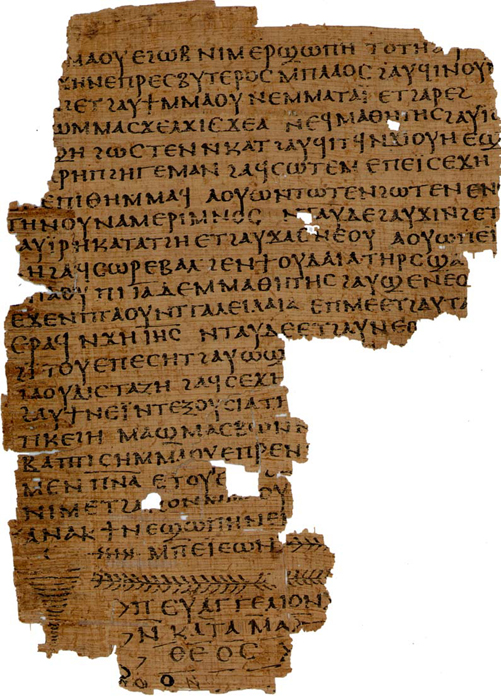 ⲙⲁⲟⲩ ⲉϩⲱⲃ ⲛⲓⲙ ⲉⲣϣⲱⲡⲏ ⲧⲟⲧⲏ
ϫⲏ ⲛⲉⲡⲣⲉⲥⲃⲩⲧⲉⲣⲟⲥ ⲙⲡⲗⲁⲟⲥ ϩⲁⲩϥⲓⲛⲟⲩ
ϩⲉⲧ ϩⲁⲩϯⲙⲙⲁⲟⲩ ⲛⲉⲙⲙⲁⲧⲁⲓ ⲉⲧϩⲁⲣⲉϩ
ⲱⲙⲙⲁⲥ ϫⲉ ⲁϫⲓⲥ ϫⲉ ⲁ ⲛⲉϥⲙⲁⲑⲏⲧⲏⲥ ϩⲁⲩⲓ
ϫⲏ ϩⲱⲥ ⲧⲉⲛⲛⲕⲁⲧ ϩⲁⲩϥⲓⲧϥ ⲛϫⲓⲟⲩⲏ ⲉϣ
ⲣⲏ ⲡϩⲏⲅⲉⲙⲁⲛ ϩⲁϥⲥⲱⲧⲉⲙ ⲉⲡⲉⲓⲥⲉϫⲏ
ⲉⲡⲓⲑⲏ ⲙⲙⲁϥ ⲁⲟⲩⲱ ⲛⲧⲱⲧⲉⲛ ϩⲱⲧⲉⲛ ⲉⲛ
ⲧⲏⲛⲟⲩ ⲛⲁⲙⲉⲣⲓⲙⲛⲟⲥ ⲛⲧⲁⲩ ⲇⲉ ϩⲁⲩϫⲓ ⲛϩⲉⲧ
ⲁⲩⲓⲣⲏ ⲕⲁⲧⲁ ⲧϩⲏ ⲉⲧϩⲁⲩϫⲁⲥ ⲛⲉⲟⲩ ⲁⲟⲩⲱ ⲡⲉⲓ
ϫⲏ ϩⲁϥⲥⲱⲣ ⲉⲃⲁⲗ ϩⲉⲛ ϯⲟⲩⲇⲁⲓⲁ ⲧⲏⲣⲥ ϣⲁ
ⲡⲓⲓⲁ ⲇⲉ ⲙⲙⲁⲑⲏⲧⲏⲥ ϩⲁⲩϣⲉ ⲛⲉⲟ
ⲉϫⲉⲛ ⲡⲧⲁⲟⲩ ⲛⲧⲅⲁⲗⲉⲓⲗⲁⲓⲁ ⲉⲡⲙⲉ ⲉⲧϩⲁⲩⲧⲁ
ⲉⲣⲁϥ ⲛϫⲏ ⲓⲏⲥ ⲛⲧⲁⲩ ⲇⲉ ⲉⲧϩⲁⲩⲛⲉⲟ
ϩⲓⲧⲟⲩ ⲉⲡⲉⲥⲏⲧ ϩⲁⲩⲟⲩⲱϣ
ϩⲁⲟⲩⲇⲓⲥⲧⲁⲍⲏ ϩⲁϥⲥⲉϫⲏ
ϩⲁⲩϯ ⲛⲉⲓ ⲛⲧⲉⲝⲟⲩⲥⲓⲁ ⲧⲏ
ⲡⲕⲉϩⲏ ⲙⲁϣ ⲙⲁⲥⲃⲱ ⲛ
ⲃⲁⲡⲧⲓⲥⲏ ⲙⲙⲁⲟⲩ ⲉⲡⲣⲉⲛ
ⲙⲉⲛ ⲡⲛⲁ ⲉⲧⲟⲩⲉ
ⲛⲓⲙ ⲉⲧϩⲁⲓϩⲟⲛ
ⲁⲛⲁⲕ ϯⲛⲉϣⲱⲡⲏ ⲛⲉⲙ
ⲙⲡⲉⲓⲉⲱⲛ
ⲡⲉⲩⲁⲅⲅⲉⲗⲓⲟⲛ
ⲛⲕⲁⲧⲁ ⲙⲁ
ⲑⲉⲟⲥ